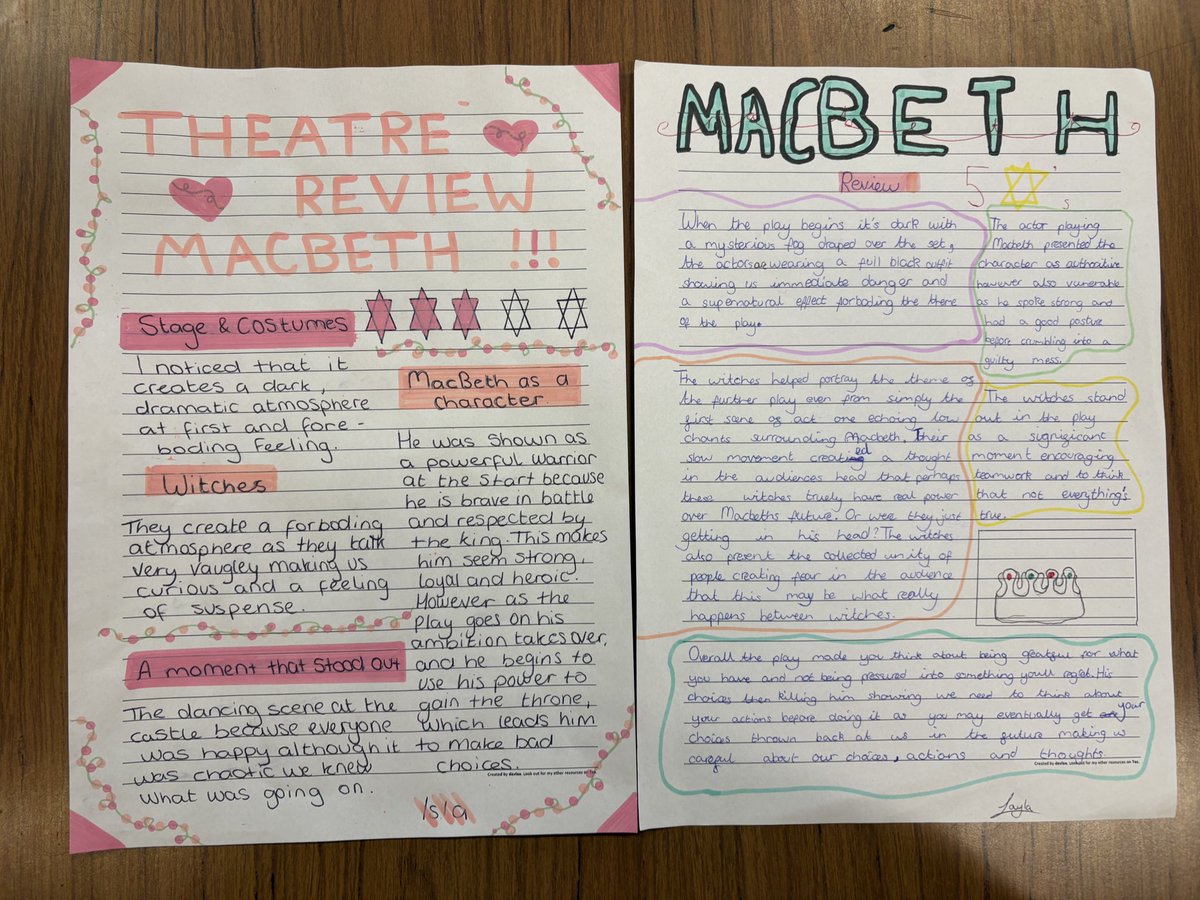 THEATRE
REVIEW
MACBETH !!!
Stage & Costumes
I noticed that it
creates a dark,
dramatic atmosphere
at first and fore-
boding feeling.
Witches
They create a forboding
atmosphere as they talk
very vaugley making us
curious and a feeling
of suspense.
A moment that stood out
The dancing scene at the
castle because everyone
was happy although it
was chaotic we knew
what was going on.
MacBeth as a
character
He was shown as
a powerful warrior
at the start because
he is brave in battle
and respected by
the king. This makes
him seem strong,
loyal and heroic.
However as the
play goes on his
ambition takes over,
and he begins to
use his power to
gain the throne,
which leads him
to make bad
choices.
Created by dexlou. Look out for my other resources on Tes.
Isla
MACBETH
Review
5 's
When the play begins it's dark with
a mysterious fog draped over the set,
the actors are wearing a full black outfit
showing us immediate danger and
a supernatural effect forboding the theme
of the play.
The actor playing
Macbeth presented the
character as
however also vunerable
as he spoke strong and
had a good posture
before crumbling into a
guilty mess.
The witches helped portray the theme of
the further play even from simply the
first scene of act one echoing low
chants surrounding Macbeth. Their
slow movement created a thought
in the audiences head that perhaps
these witches truely have real power
over Macbeths future. Or were they just
getting in his head? The witches
also present the collected unity of
people creating fear in the audience
that this may be what really
happens between witches.
The witches stand
out in the play
as a signigicant
moment encouraging
teamwork and to think
that not everything's
true.
Overall the play made you think about being greatful for what
you have and not being pressured into something youll regret. His
choices then killing him showing we need to think about
your actions before doing it as you may eventually get your
choices thrown back at us in the future making us
careful about our choices, actions and thoughts.
Created by dexlou. Look out for my other resources on Tes.
Layla